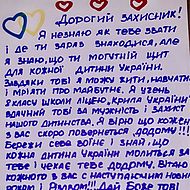 Дорогий захисник!
Я незнаю як тебе звати
і де ти зараз знаходися, але
я знаю, що ти могутній щит
для кожної дитини України.
Завдяки тобі я можу жити, навчатись
і мріяти про майбутнє. Я учень
8 класу школи ліцею, крила України
вдячний тобі за мужність і захист
нього дитинства. Я вірю що кожен
з вас скоро повернеться додому!!!
Бережи себе воїне і знай, що
кожна дитина України молиться за
тебе і чекає тебе додому. Вітаю
кожного з вас з наступаючим Новим
роком і Різдвом!!! Дай Боже тобі